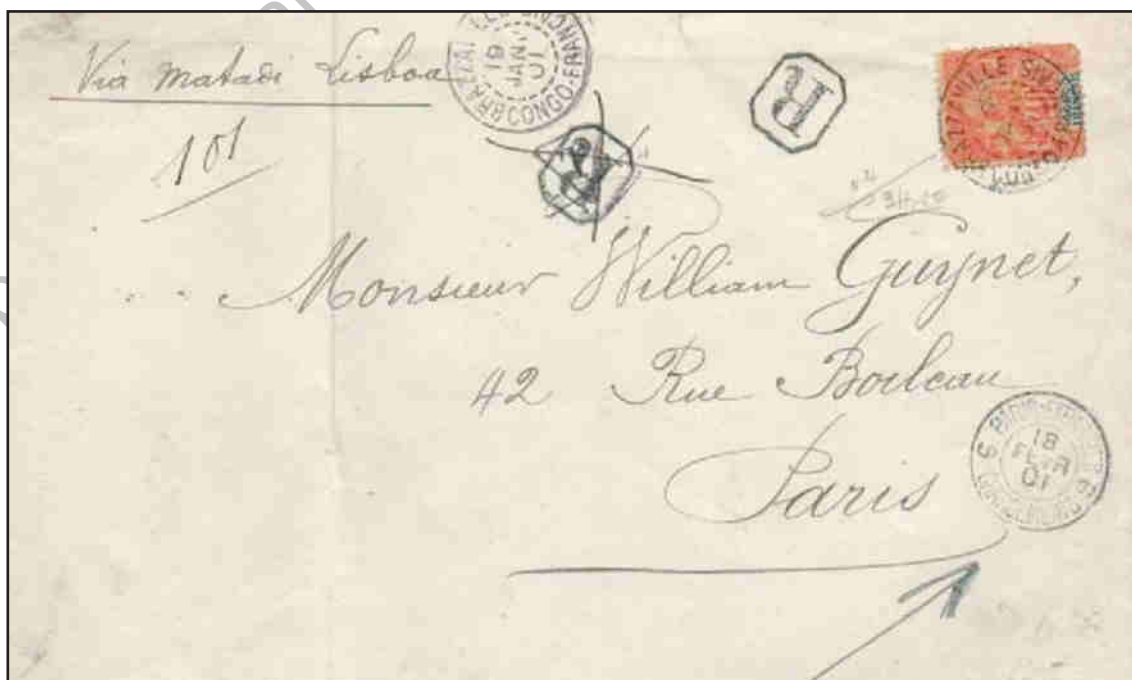 Via Matadi Lisboa
19
JANV
01
CONGO-FRANC
R
R
101
Monsieur William Guynet,
42 Rue Boileau
Paris
6 6
18
FEVR
01